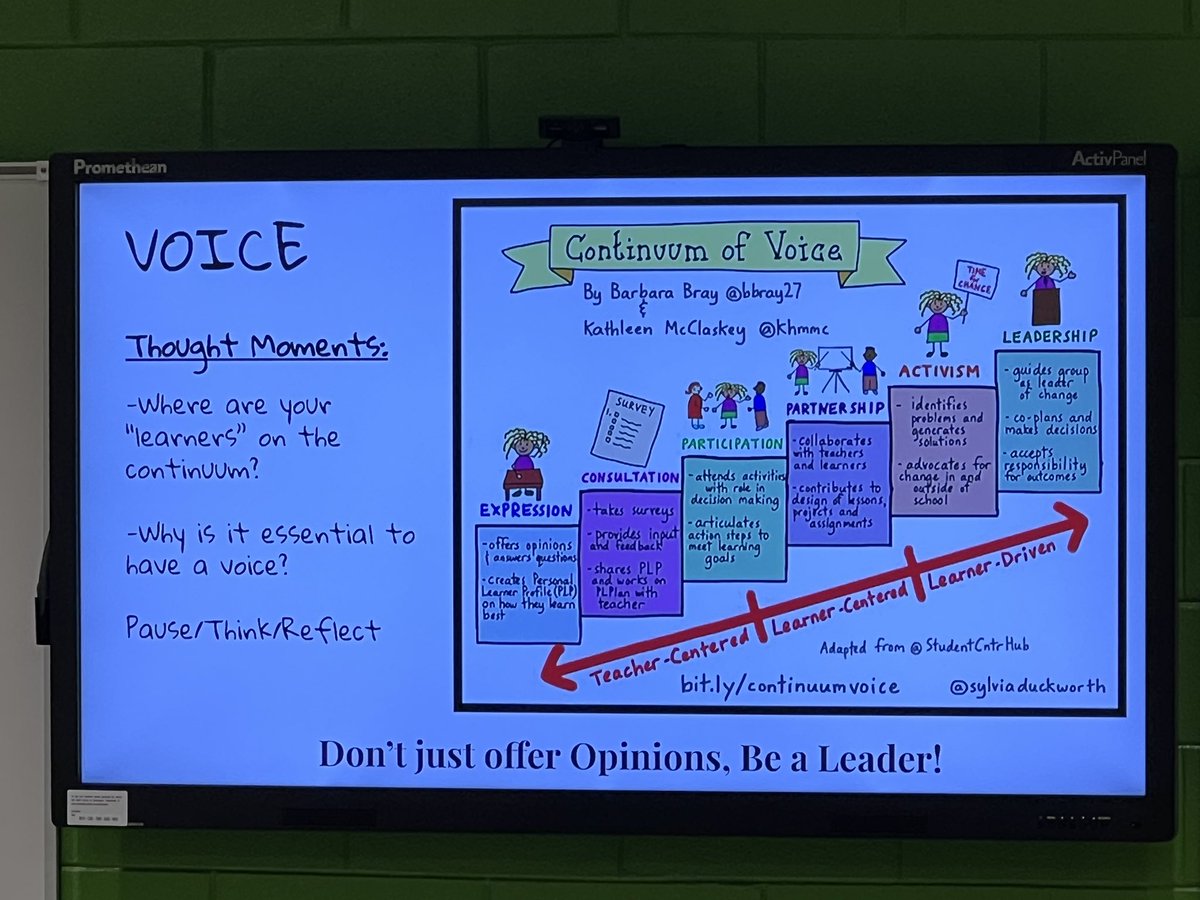 Promethean
ActivPanel
VOICE
Thought Moments:
-Where are your
"learners" on the
continuum?
-Why is it essential to
have a voice?
Pause/Think/Reflect
Continuum of Voice
By Barbara Bray @bbray27
&
Kathleen McClaskey @khmmc
EXPRESSION
-offers opinions
& answers questions
-creates Personal
Learner Profile (PLP)
on how they learn
best
SURVEY
1.
CONSULTATION
-takes surveys
-provides input
and feedback
-shares PLP
and works on
PLPlan with
teacher
PARTICIPATION
-attends activities
with role in
decision making
-articulates
action steps to
meet learning
goals
PARTNERSHIP
-collaborates
with teachers
and learners
-contributes to
design of lessons,
projects and
assignments
TIME
for
CHANGE
ACTIVISM
- identifies
problems and
generates
solutions
-advocates for
change in and
outside of
school
LEADERSHIP
-guides group
as leader
of change
-co-plans and
makes decisions
-accepts
responsibility
for outcomes
Teacher-Centered
Learner-Centered
Learner-Driven
Adapted from @StudentCntrHub
bit.ly/continuumvoice
@sylviaduckworth
Don't just offer Opinions, Be a Leader!